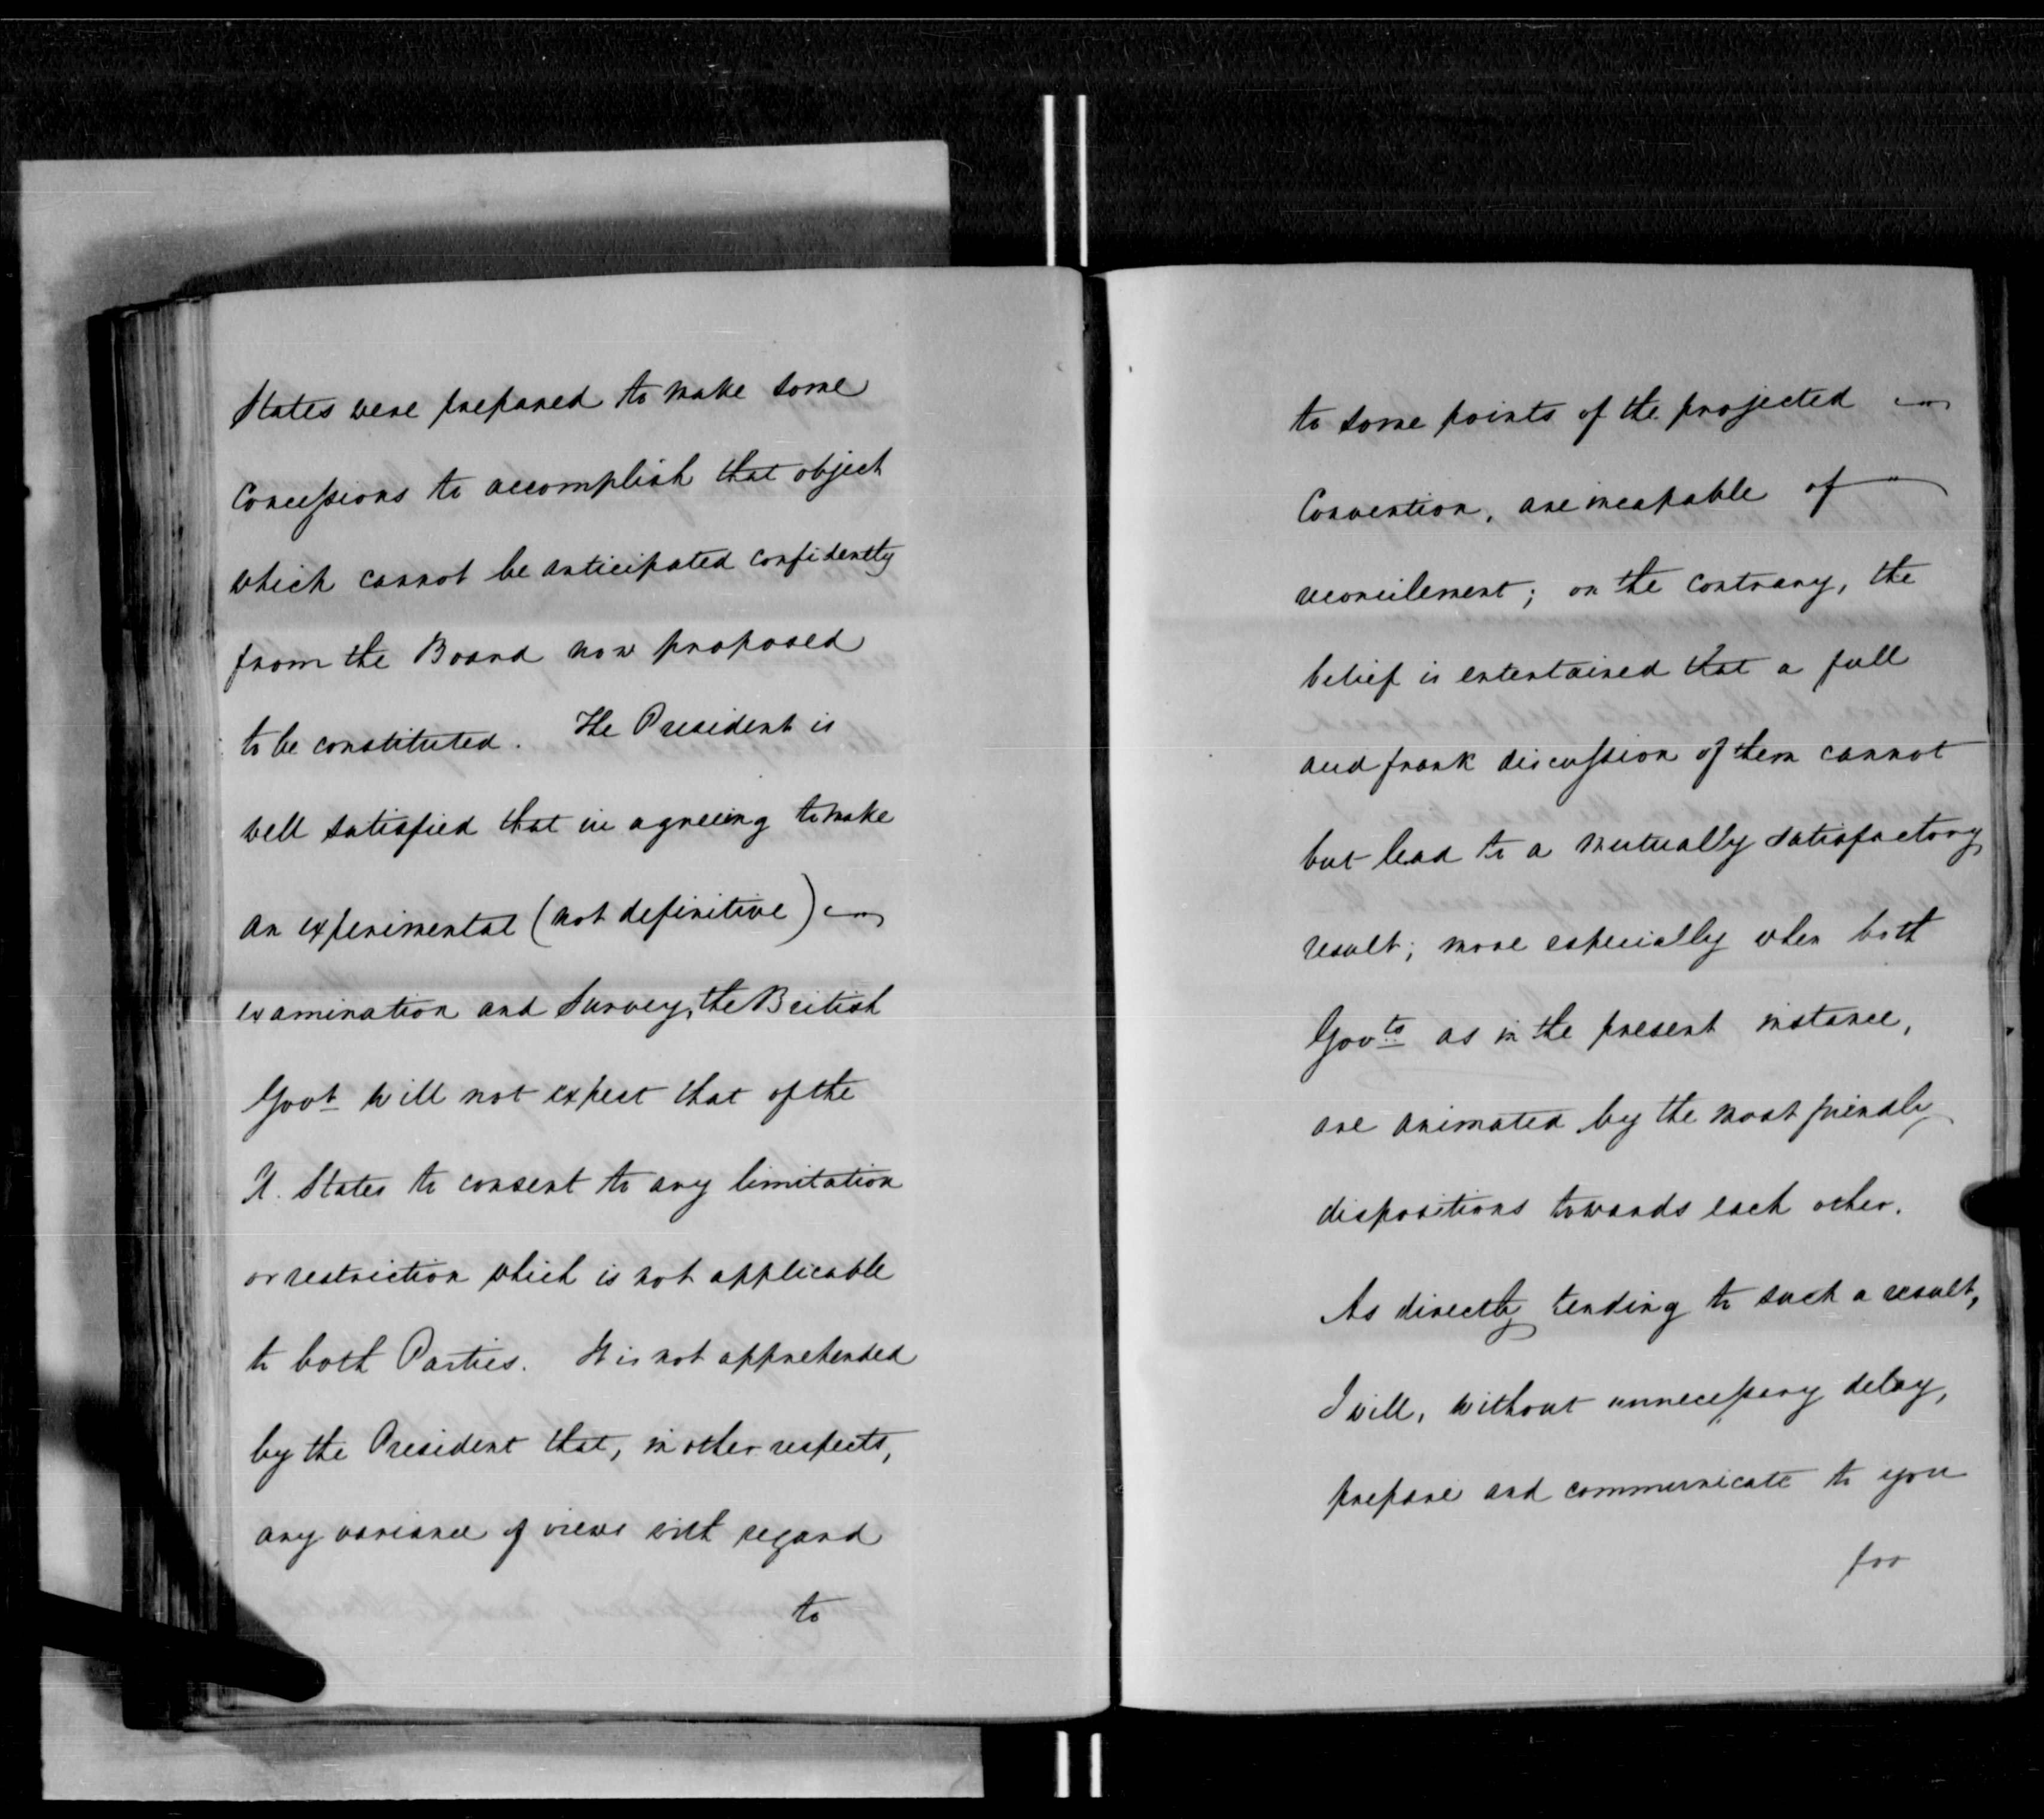 States were prepared to make some
Concessions to accomplish that object
which cannot be anticipated confidently
from the Board now proposed
to be constituted. The President is
well satisfied that in agreeing to make
an experimental (not definitive)
examination and Survey, the British
Govt will not expect that of the
U. States to consent to any limitation
or restriction which is not applicable
to both Parties. It is not apprehended
by the President that, in other respects,
any variance of views with regard
to
to some points of the projected
Convention, are incapable of
reconcilement; on the contrary, the
belief is entertained that a full
and frank discussion of them cannot
but lead to a mutually satisfactory
result; more especially when both
Govts as in the present instance,
are animated by the most friendly
dispositions towards each other.
As directly tending to such a result,
I will, without unnecessary delay,
prepare and communicate to you
for